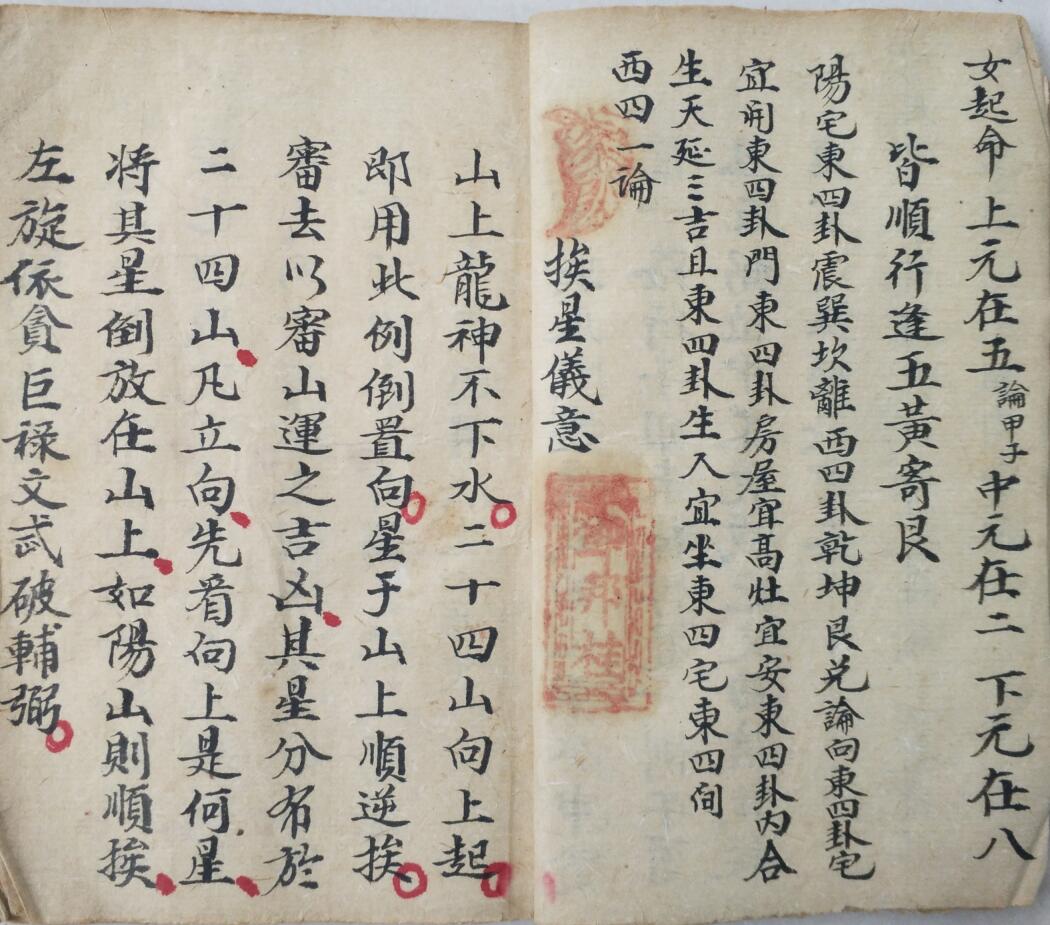 女起命上元在五論甲子中元在二下元在八
皆順行逢五黃寄艮
陽宅東四卦震巽坎離西四卦乾坤艮兑論向東四卦宅
宜開東四卦門東四卦房屋宜高灶宜安東四卦内合
生天延三吉且東四卦生人宜坐東四宅東四间
西四一論
挨星儀意
山上龍神不下水二十四山向上起
即用此例倒置向星于山上順逆挨
審去以審山運之吉凶其星分布於
二十四山凡立向先看向上是何星
将其星倒放在山上如陽山則順挨
左旋依貪巨禄文武破輔弼